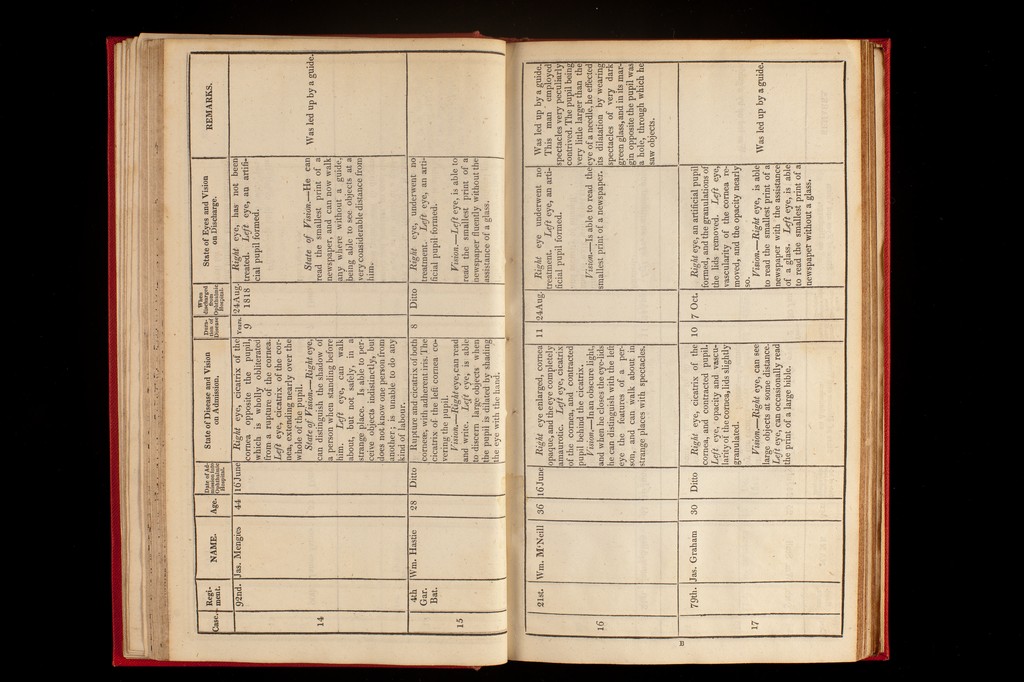 Case.
Regi-
ment.
NAME.
Age.
Date of Ad-
mission into
Ophthalmic
Hospital.
State of Disease and Vision
on Admission.
Dura-
tion of
Disease
When
discharged
from
Ophthalmic
Hospital.
State of Eyes and Vision
on Discharge.
REMARKS.
14
92nd.
Jas. Mengies
44
16 June
Right eye, cicatrix of the
cornea opposite the pupil,
which is wholly obliterated
from a rupture of the cornea.
Left eye, cicatrix of the cor-
nea, extending nearly over the
whole of the pupil.
State of Vision.—Right eye,
can distinguish the shadow of
a person when standing before
him. Left eye, can walk
about, but not safely, in a
strange place. Is able to per-
ceive objects indistinctly, but
does not know one person from
another; is unable to do any
kind of labour.
Years.
9
24 Aug.
1818
Right eye, has not been
treated. Left eye, an artifi-
cial pupil formed.
State of Vision.—He can
read the smallest print of a
newspaper, and can now walk
any where without a guide,
being able to see objects at a
very considerable distance from
him.
Was led up by a guide.
15
4th
Gar.
Bat.
Wm. Hastie
28
Ditto
Rupture and cicatrix of both
corneæ, with adherent iris. The
cicatrix of the left cornea co-
vering the pupil.
Vision.—Right eye, can read
and write. Left eye, is able
to discern large objects when
the pupil is dilated by shading
the eye with the hand.
8
Ditto
Right eye, underwent no
treatment. Left eye, an arti-
ficial pupil formed.
Vision.—Left eye, is able to
read the smallest print of a
newspaper fluently without the
assistance of a glass.
16
21st.
Wm. M'Neill
36
16 June
Right eye enlarged, cornea
opaque, and the eye completely
amaurotic. Left eye, cicatrix
of the cornea, and contracted
pupil behind the cicatrix.
Vision.—In an obscure light,
and when he closes the eye-lids
he can distinguish with the left
eye the features of a per-
son, and can walk about in
strange places with spectacles.
11
24 Aug.
Right eye underwent no
treatment. Left eye, an arti-
ficial pupil formed.
Vision.—Is able to read the
smallest print of a newspaper.
Was led up by a guide.
This man employed
spectacles very peculiarly
contrived. The pupil being
very little larger than the
eye of a needle, he effected
its dilatation by wearing
spectacles of very dark
green glass, and in its mar-
gin opposite the pupil was
a hole, through which he
saw objects.
17
79th.
Jas. Graham
30
Ditto
Right eye, cicatrix of the
cornea, and contracted pupil.
Left eye, opacity and vascu-
larity of the cornea, lids slightly
granulated.
Vision.—Right eye, can see
large objects at some distance.
Left eye, can occasionally read
the print of a large bible.
10
7 Oct.
Right eye, an artificial pupil
formed, and the granulations of
the lids removed. Left eye,
vascularity of the cornea re-
moved, and the opacity nearly
so.
Vision.—Right eye, is able
to read the smallest print of a
newspaper with the assistance
of a glass. Left eye, is able
to read the smallest print of a
newspaper without a glass.
Was led up by a guide.
B